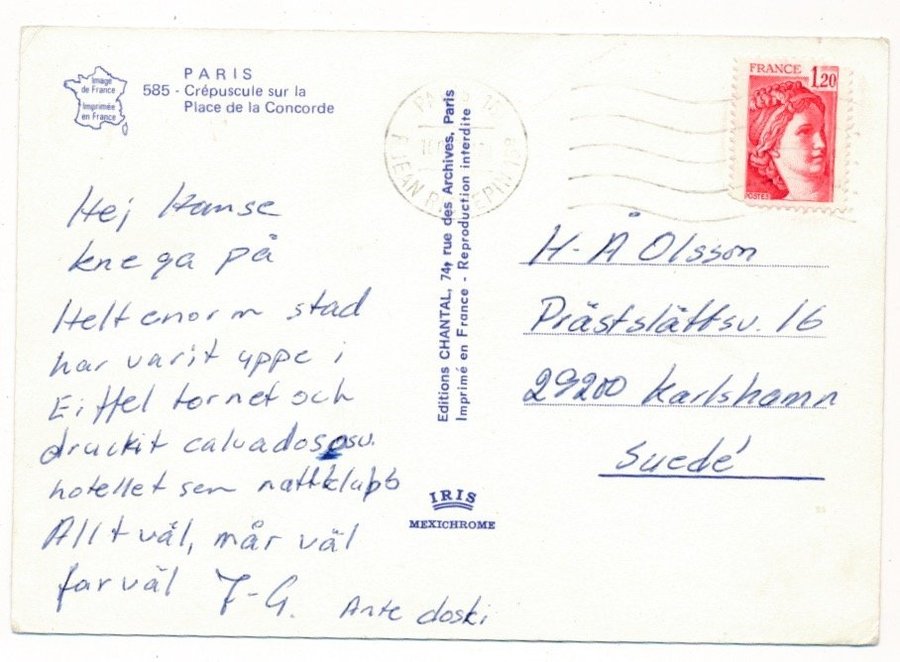 Image
de France
Imprimée
en France
PARIS
585 - Crépuscule sur la
Place de la Concorde
Hej Hanse
knega på
Helt enorm stad
har varit uppe i
Eiffel tornet och
druckit calvados osv.
hotellet sen nattklubb
Allt väl, mår väl
farväl J-G. Ante doski
Editions CHANTAL, 74, rue des Archives, Paris
Imprimé en France - Reproduction interdite
IRIS
MEXICHROME
FRANCE 1,20
POSTES
H-Å Olsson
Prästslättsv. 16
29200 Karlshamn
Suedé